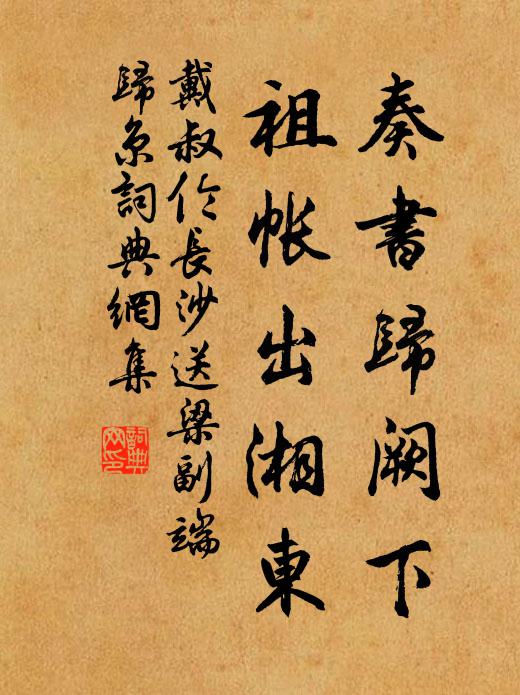 奏書歸闕下
祖帳出湘東
戴叔伦長沙送梁副端
歸京詞典網集
詞典网印